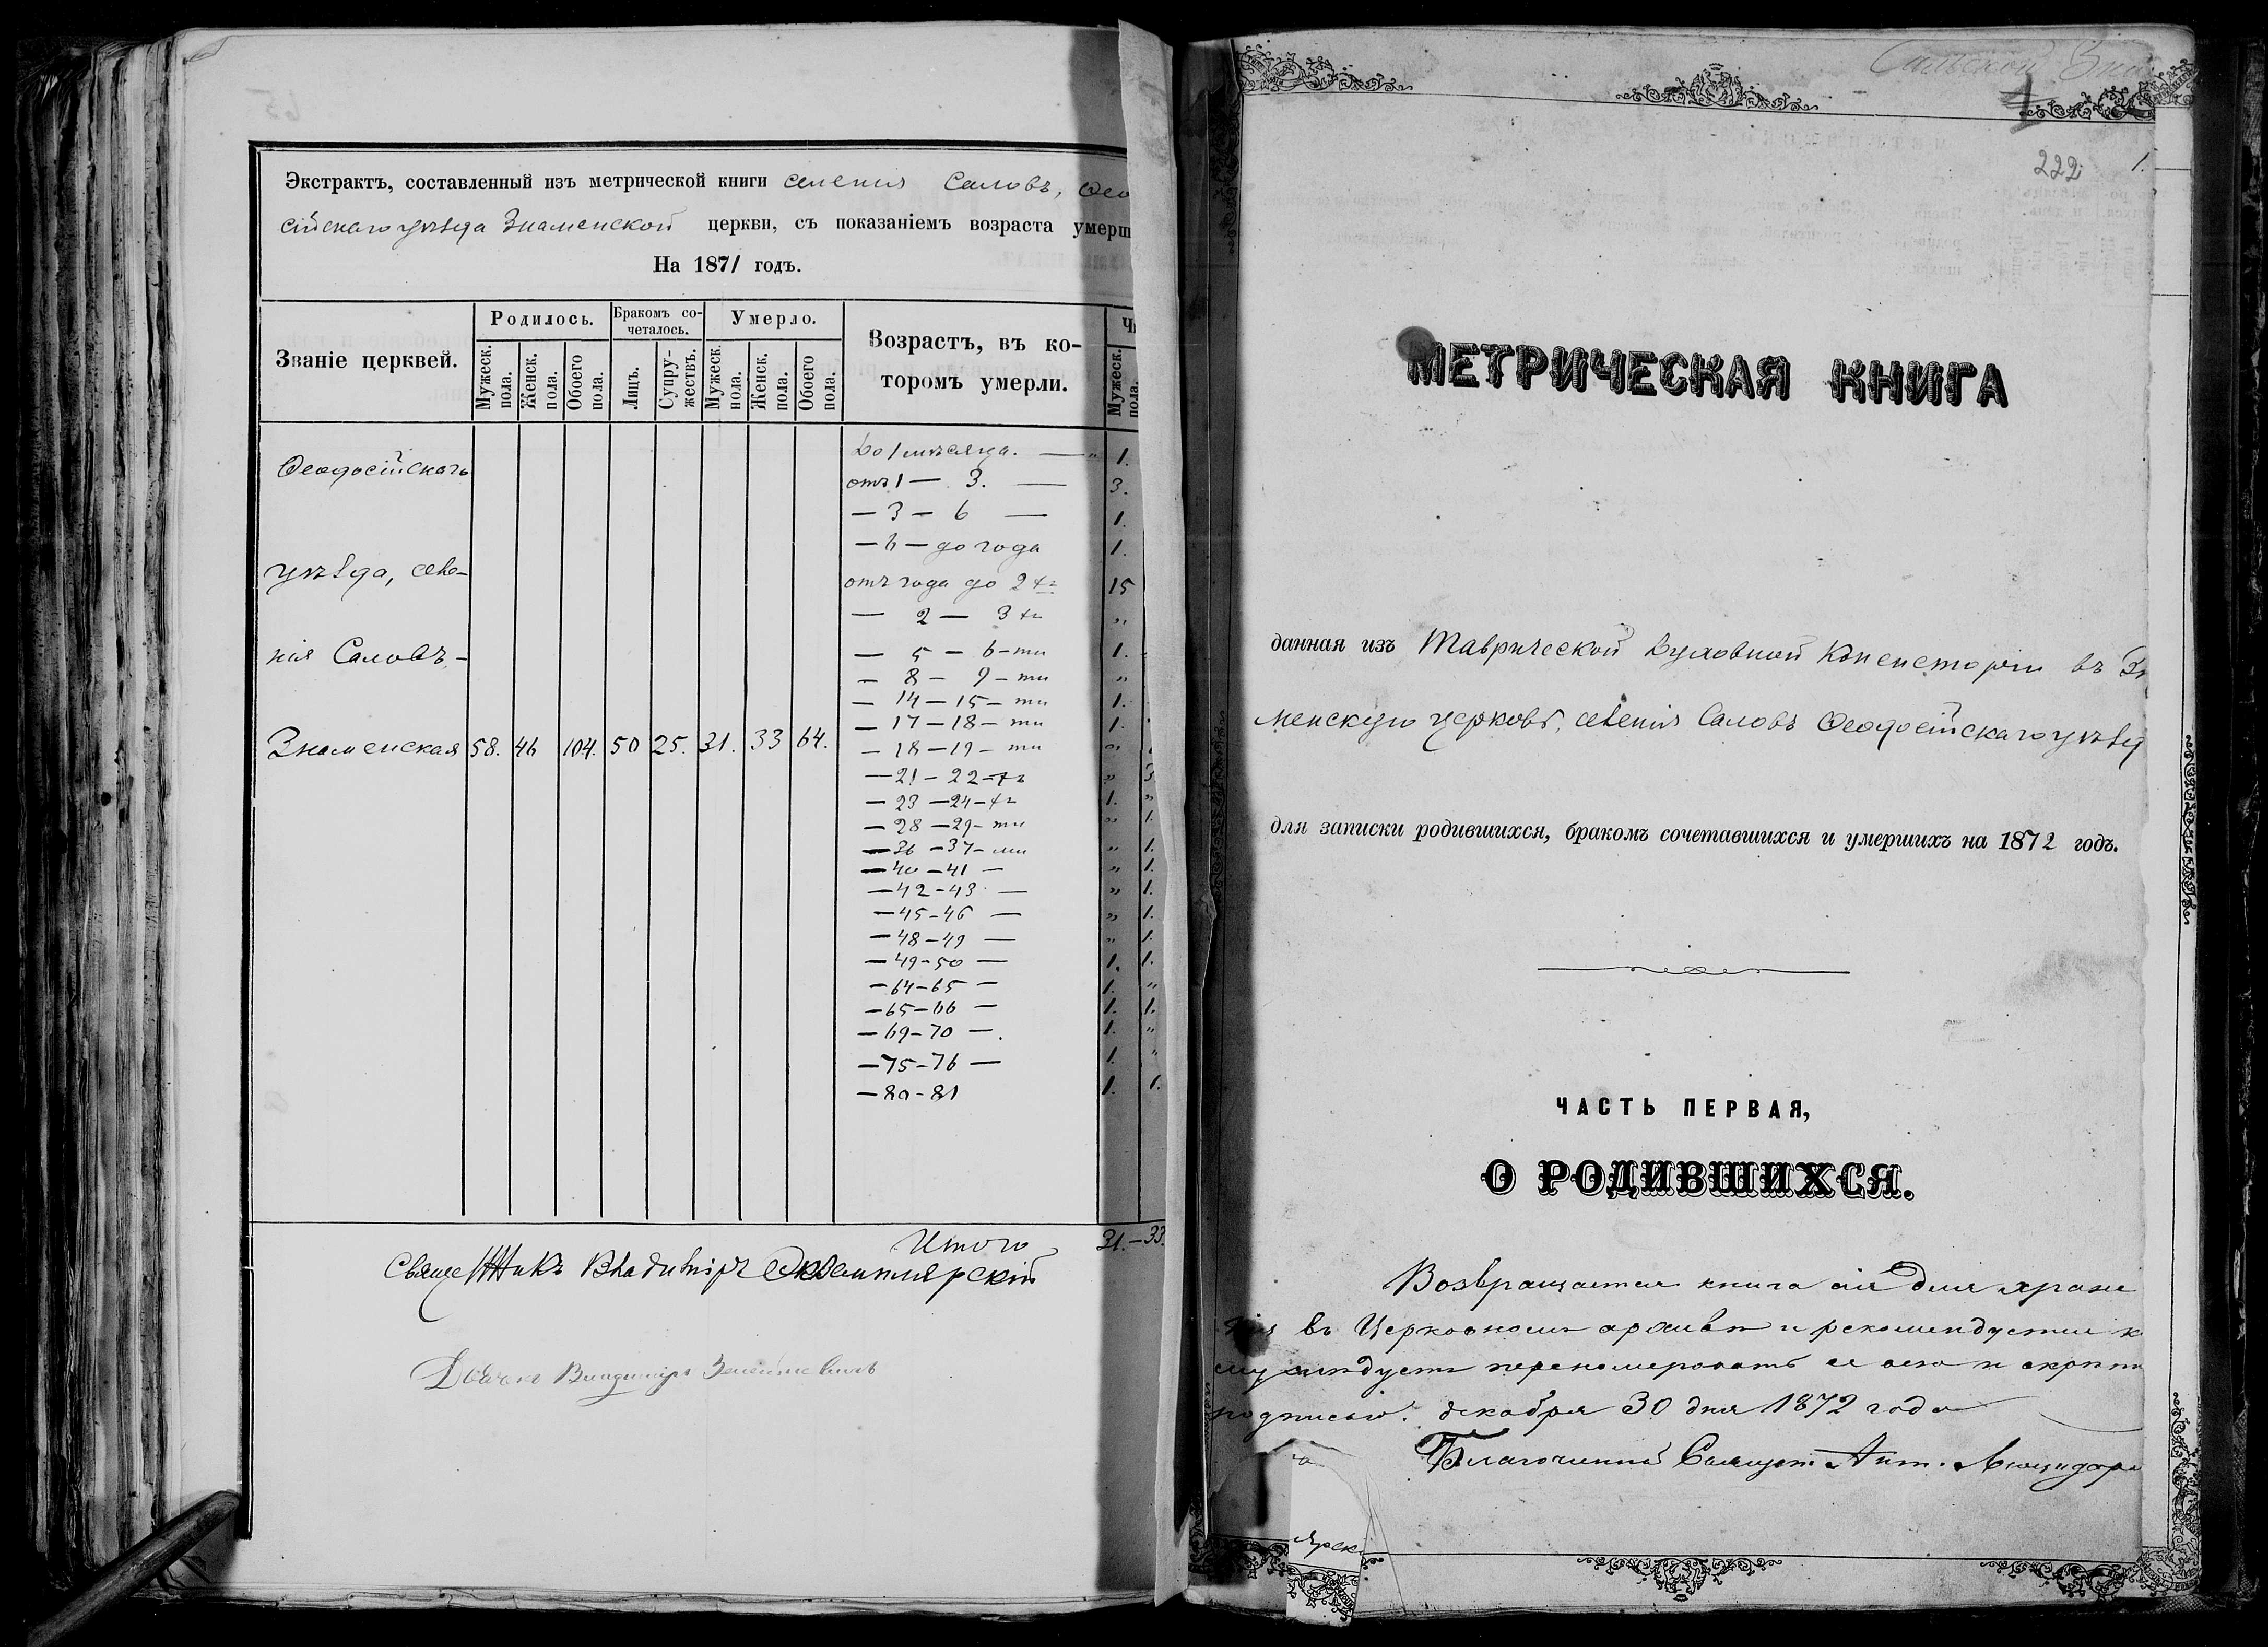 Экстрактъ, составленный изъ метрической книги селенія Саловъ, Ѳео
сійскаго уѣзда Знаменской церкви, съ показаніемъ возраста умерш
На 1871 годъ.
Званіе церквей.
Родилось.
Бракомъ со-
четалось.
Умерло.
Возрастъ, въ ко-
торомъ умерли.
Мужеск. пола.
Женск. пола.
Обоего пола.
Лицъ.
Супру-
жествъ.
Мужеск. пола.
Женск. пола.
Обоего пола.
Мужеск. пола.
Ѳеодосійскаго
уѣзда, селе-
нія Саловъ,-
Знаменская 58. 46 104. 50 25. 31. 33 64.
До 1 мѣсяца. — " 1.
отъ 1 — 3. — 3.
— 3 — 6 — 1.
— 6 — до года 1.
отъ года до 2 хъ 15
— 2 — 3 хъ "
— 5 — 6-ти 1.
— 8 — 9-ти "
— 14 — 15-ти 1.
— 17 — 18-ти 1.
— 18 — 19-ти "
— 21 — 22-хъ " 3
— 23 — 24-хъ 1. "
— 28 — 29-ти " 1.
— 36 — 37-ми " 1.
— 40 — 41 — " 1.
— 42 — 43 — " 1.
— 45 — 46 — " 1.
— 48 — 49 — " 1.
— 49 — 50 — 1. 1.
— 64 — 65 — 1. "
— 65 — 66 — 1. 1.
— 69 — 70 —. 1. "
— 75 — 76 — 1. "
— 80 — 81 1. 1.
Итого 31.-33.
Священникъ Владиміръ Экземплярскій
Дьячокъ Владиміръ
222
1.
МЕТРИЧЕСКАЯ КНИГА
данная изъ Таврической Духовной Консисторіи въ Зн
менскую церковь, селенія Саловъ Ѳеодосійскаго уѣзд
для записки родившихся, бракомъ сочетавшихся и умершихъ на 1872 годъ.
ЧАСТЬ ПЕРВАЯ,
О РОДИВШИХСЯ.
Возвращается книга сія для хране
нія въ Церковномъ архивѣ и рекомендуется к
слѣдуетъ перенумеровать ее и скрѣпи
подписью. декабря 30 дня 1872 года
Благочинный Священ. Ант.
ярскі